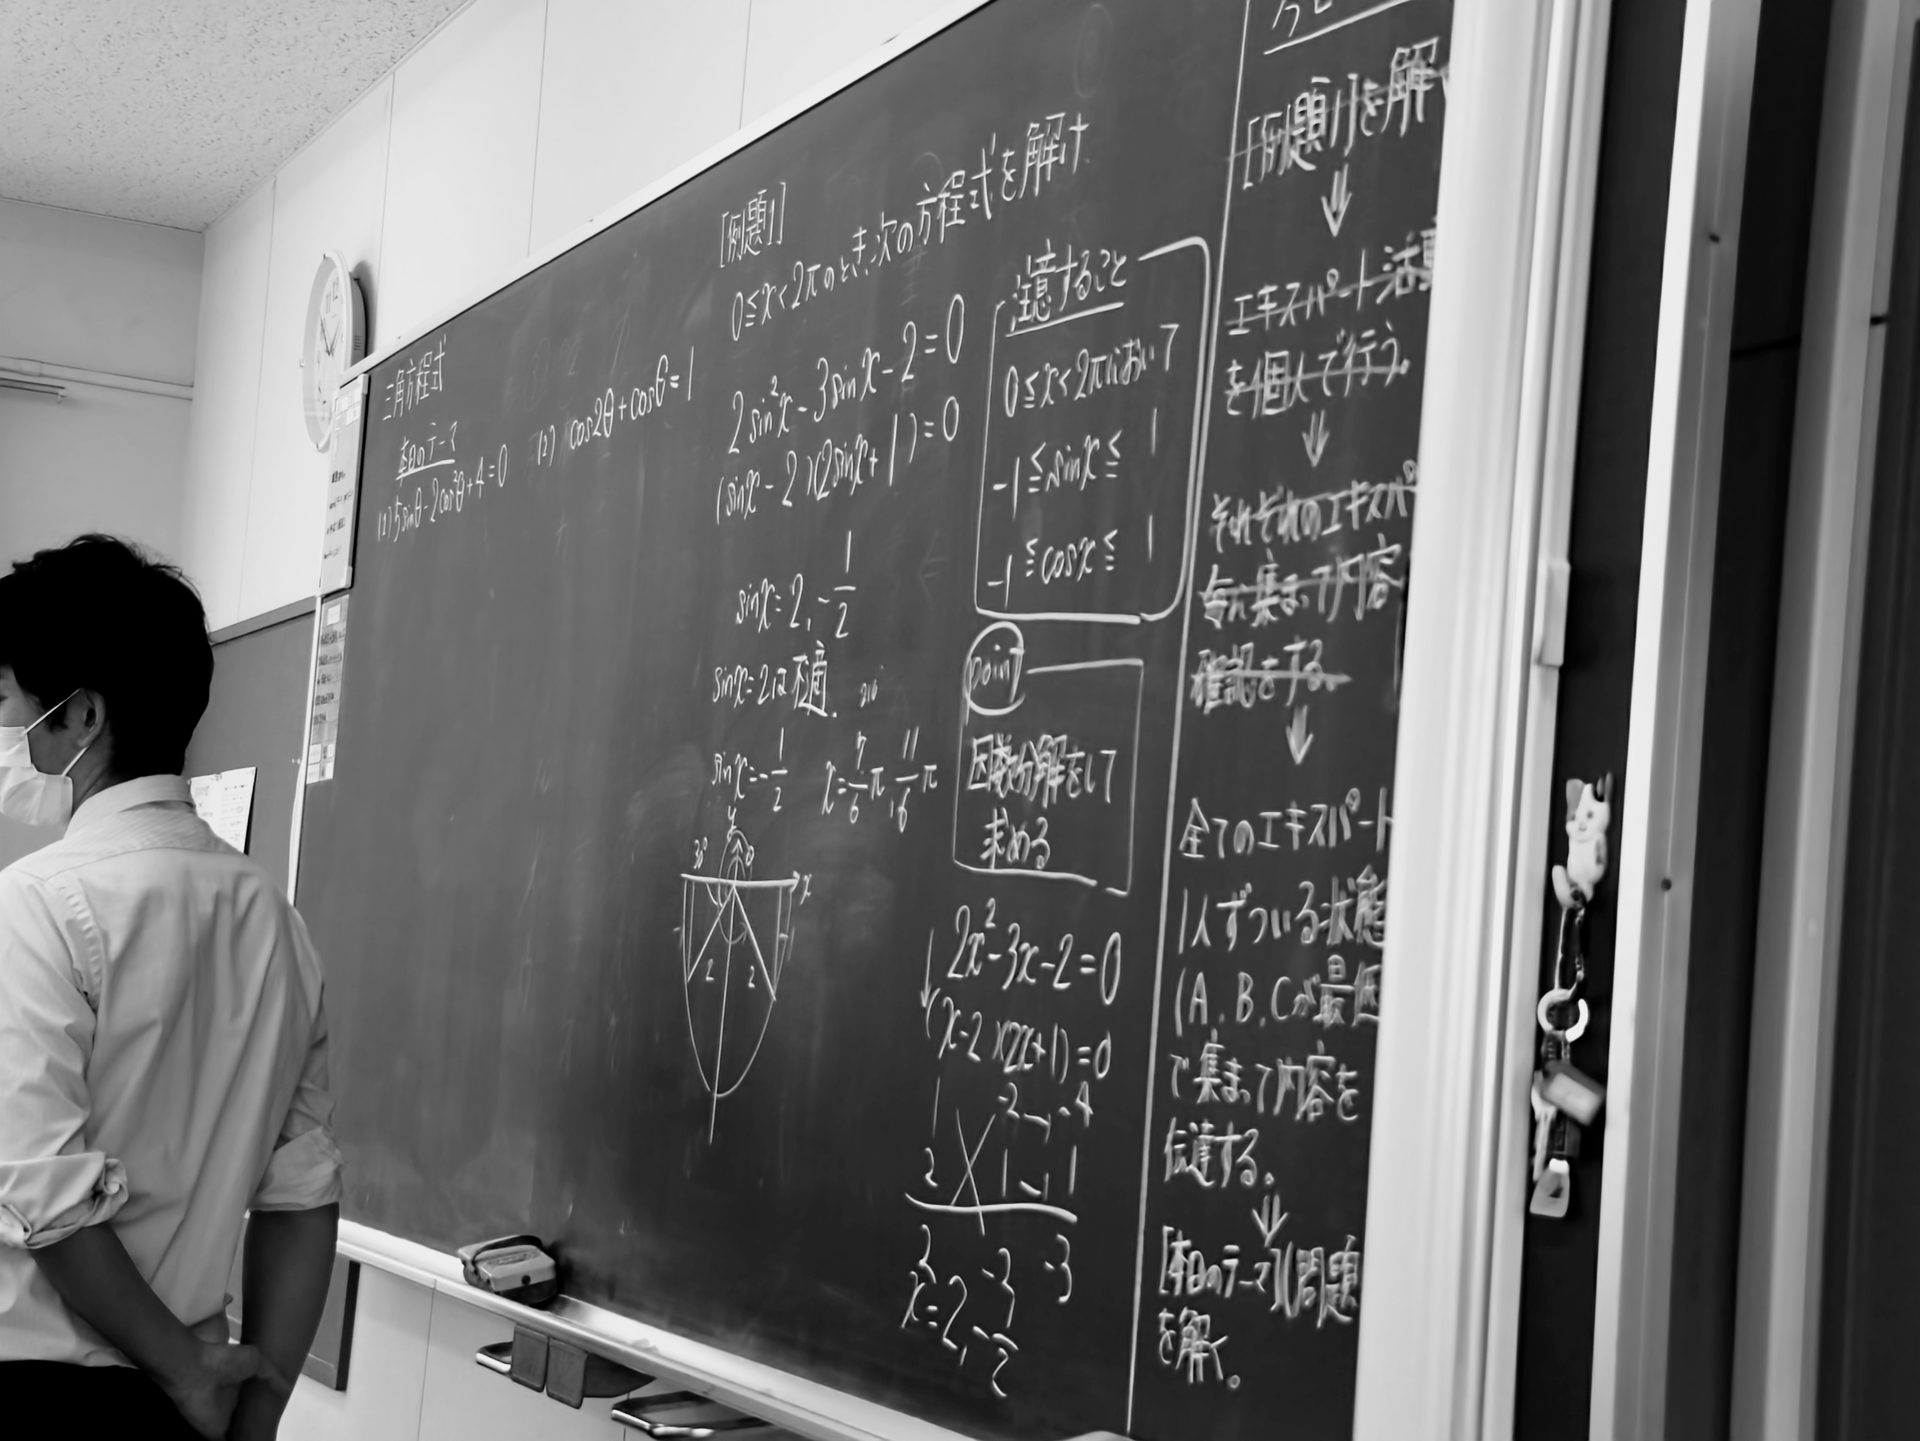 三角方程式
本日のテーマ
(1) 5sinθ-2cos²θ+4=0
(2) cos2θ+cosθ=1
[例題1]
0≦x<2πのとき、次の方程式を解け
2sin²x-3sinx-2=0
(sinx-2)(2sinx+1)=0
sinx=2,-1/2
sinx=2は不適.
210
sinx=-1/2 x=7/6π,11/6π
y
30°
x
2 2
注意すること
0≦x<2πにおいて
-1≦sinx≦1
-1≦cosx≦1
point
因数分解をして
求める
2x²-3x-2=0
(x-2)(2x+1)=0
1 -2 → -4
2 1 → 1
2 -3 -3
x=2,-1/2
[例題1]を解
⇓
エキスパート活動
を個人で行う。
⇓
それぞれのエキスパ
毎に集まって内容
確認をする。
⇓
全てのエキスパート
1人ずついる状態
(A.B.Cが最低
で集まって内容を
伝達する。
⇓
[本日のテーマ]の問題
を解く。